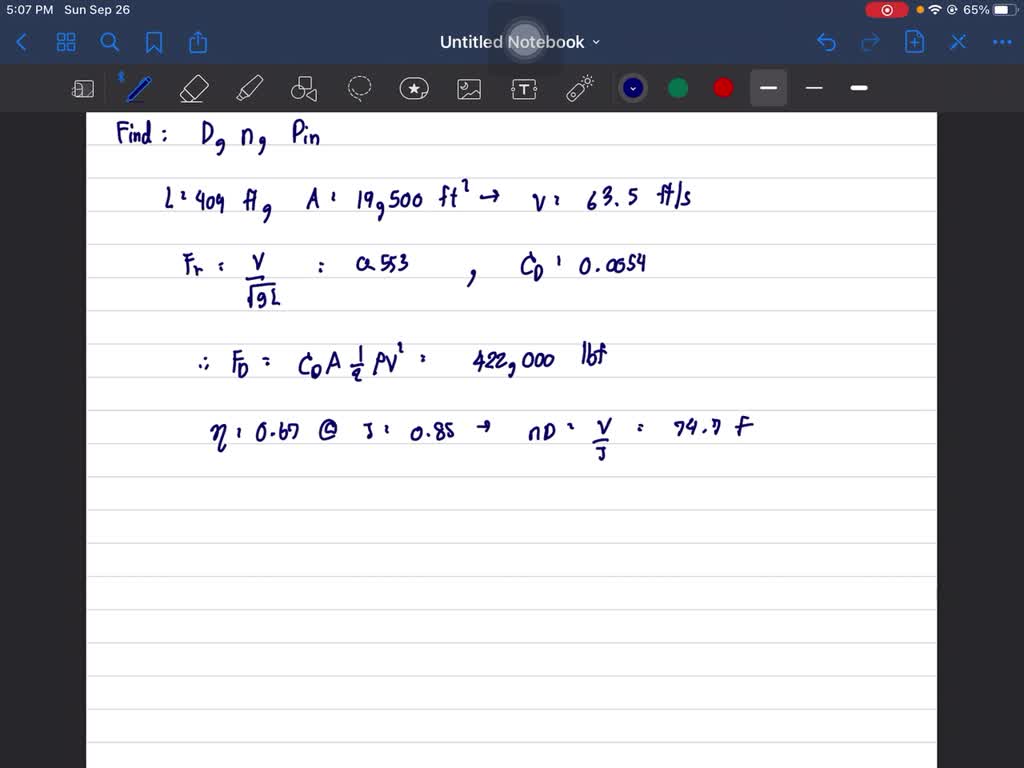 5:07 PM Sun Sep 26
65%
Untitled Notebook
Find : D, n, Pin
L = 409 ft, A = 19,500 ft² → V = 63.5 ft/s
Fr = V/√gL = 0.553 , CD = 0.0054
∴ FD = CD A 1/2 ρV² = 422,000 lbf
η = 0.67 @ J = 0.85 → nD = V/J = 74.7 F